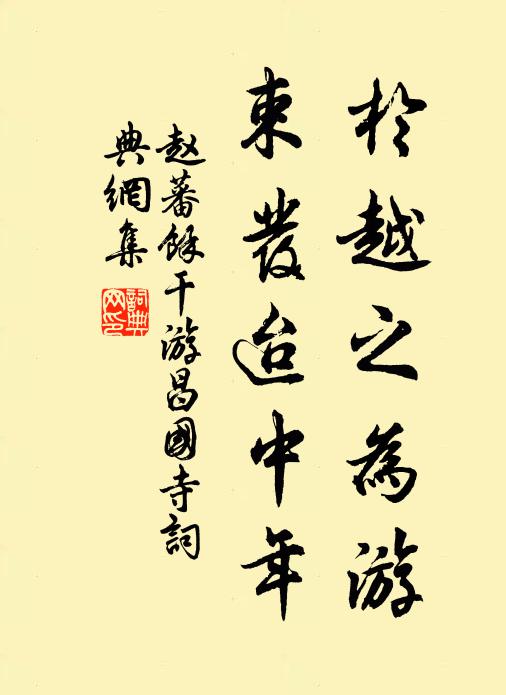 於越之為游
束發迨中年
赵蕃馀干游昌國寺詞
典網集
詞典網印